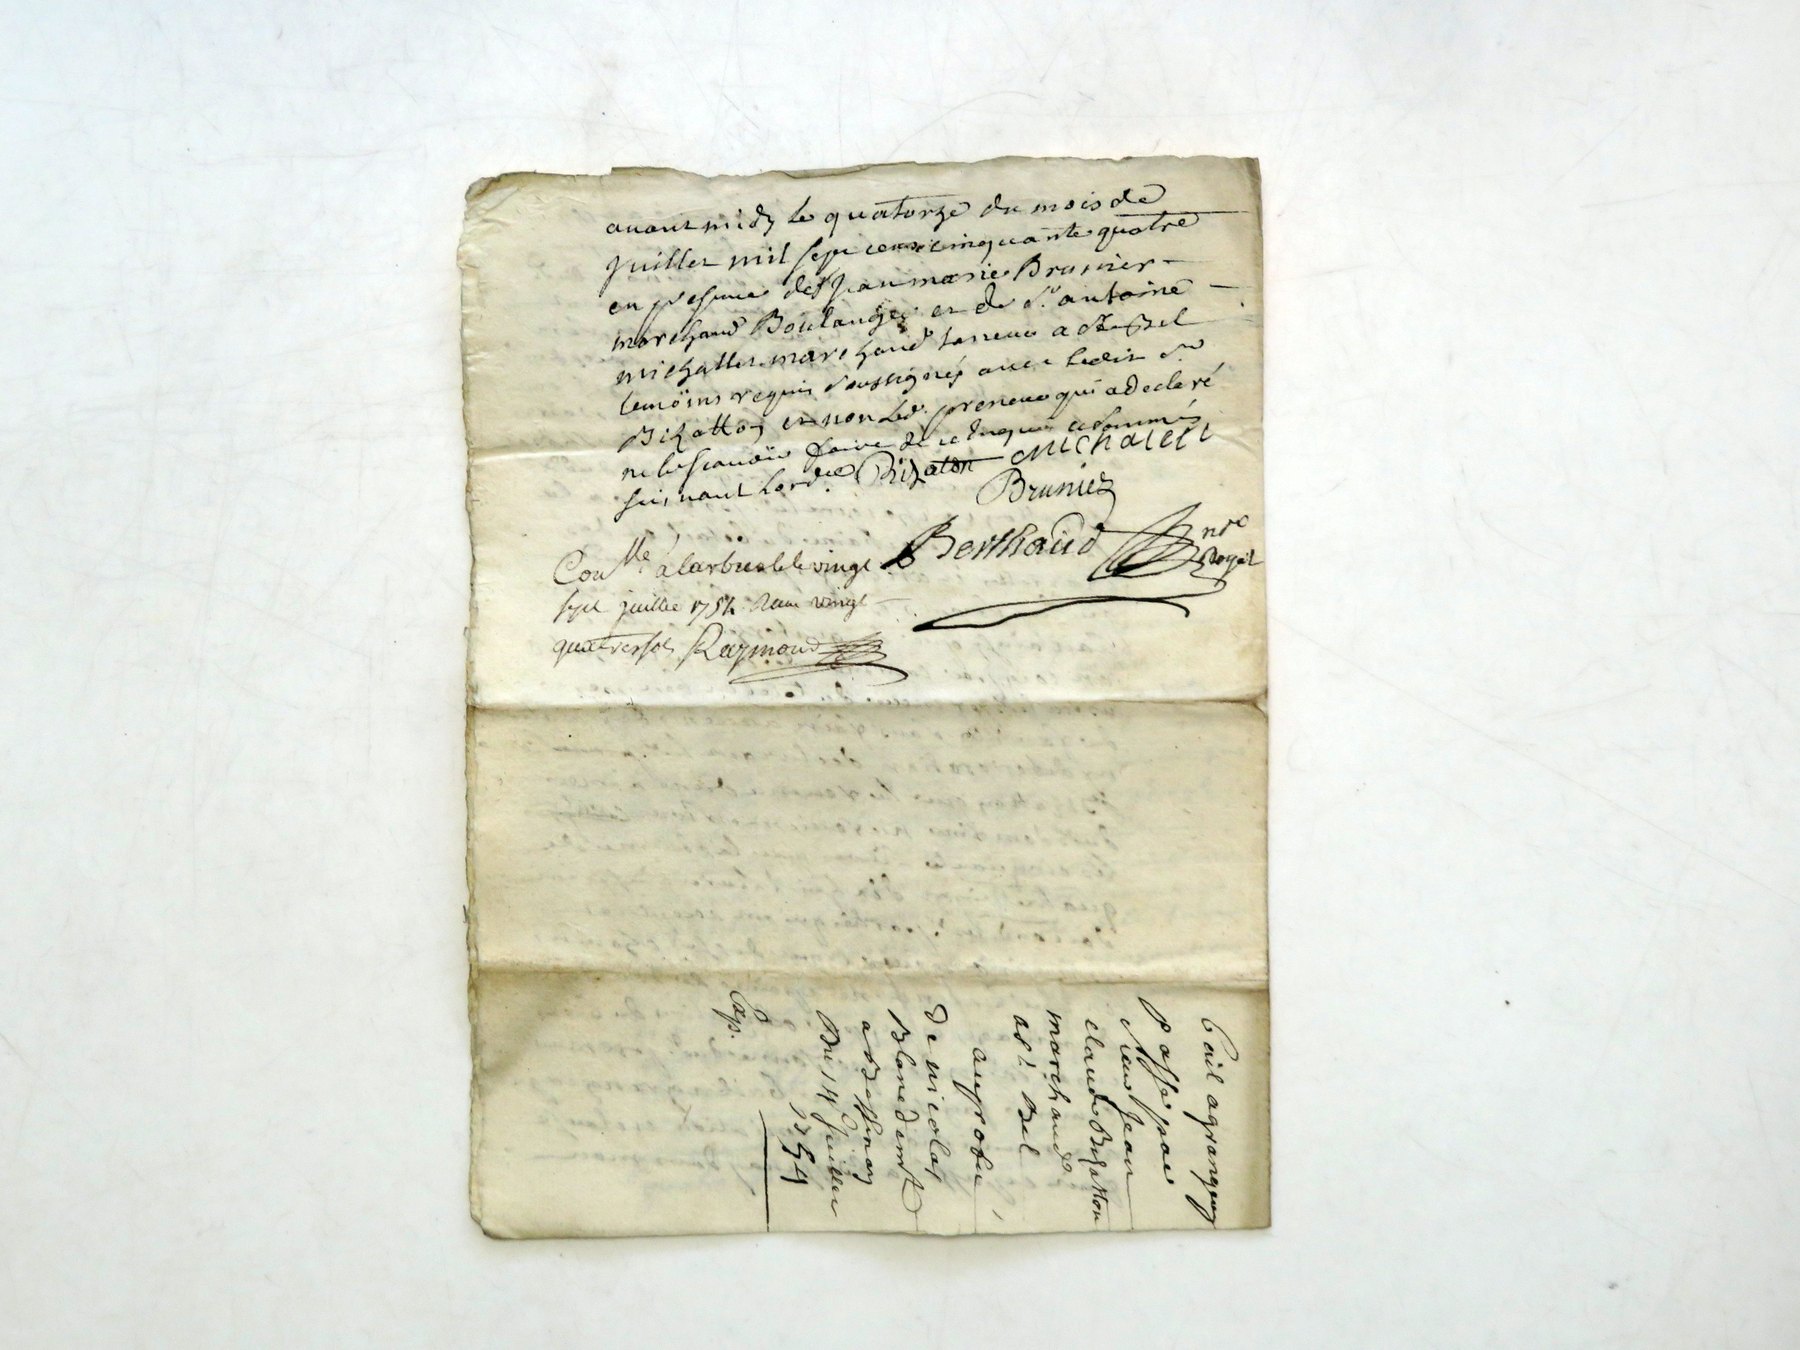 avant midy le quatorze du mois de
juillet mil sept cens cinquante quatre
en presence de Sr jean marie Brunier
marchand Boulanger et de Sr antoine
michallet marchand tanneur a St Bel
temoins requis soussignés avec ledit Sr
Bizatton et non led. preneur qui a declaré
ne le scavoir faire de ce enquis et sommés
suivant lordce Bizaton Michallet
Brunier
Berthaud nre
Royal
Conlle a larbresle le vingt
sept juillet 1754 Recu vingt
quatre sols Raymond
Bail a grangeage
Passé par
Sieur Jean
claude Bizatton
marchand
a St Bel
au profit
de nicolas
Blanc demt
a Bessenay
Du 14 Juillet
1754
Exp.